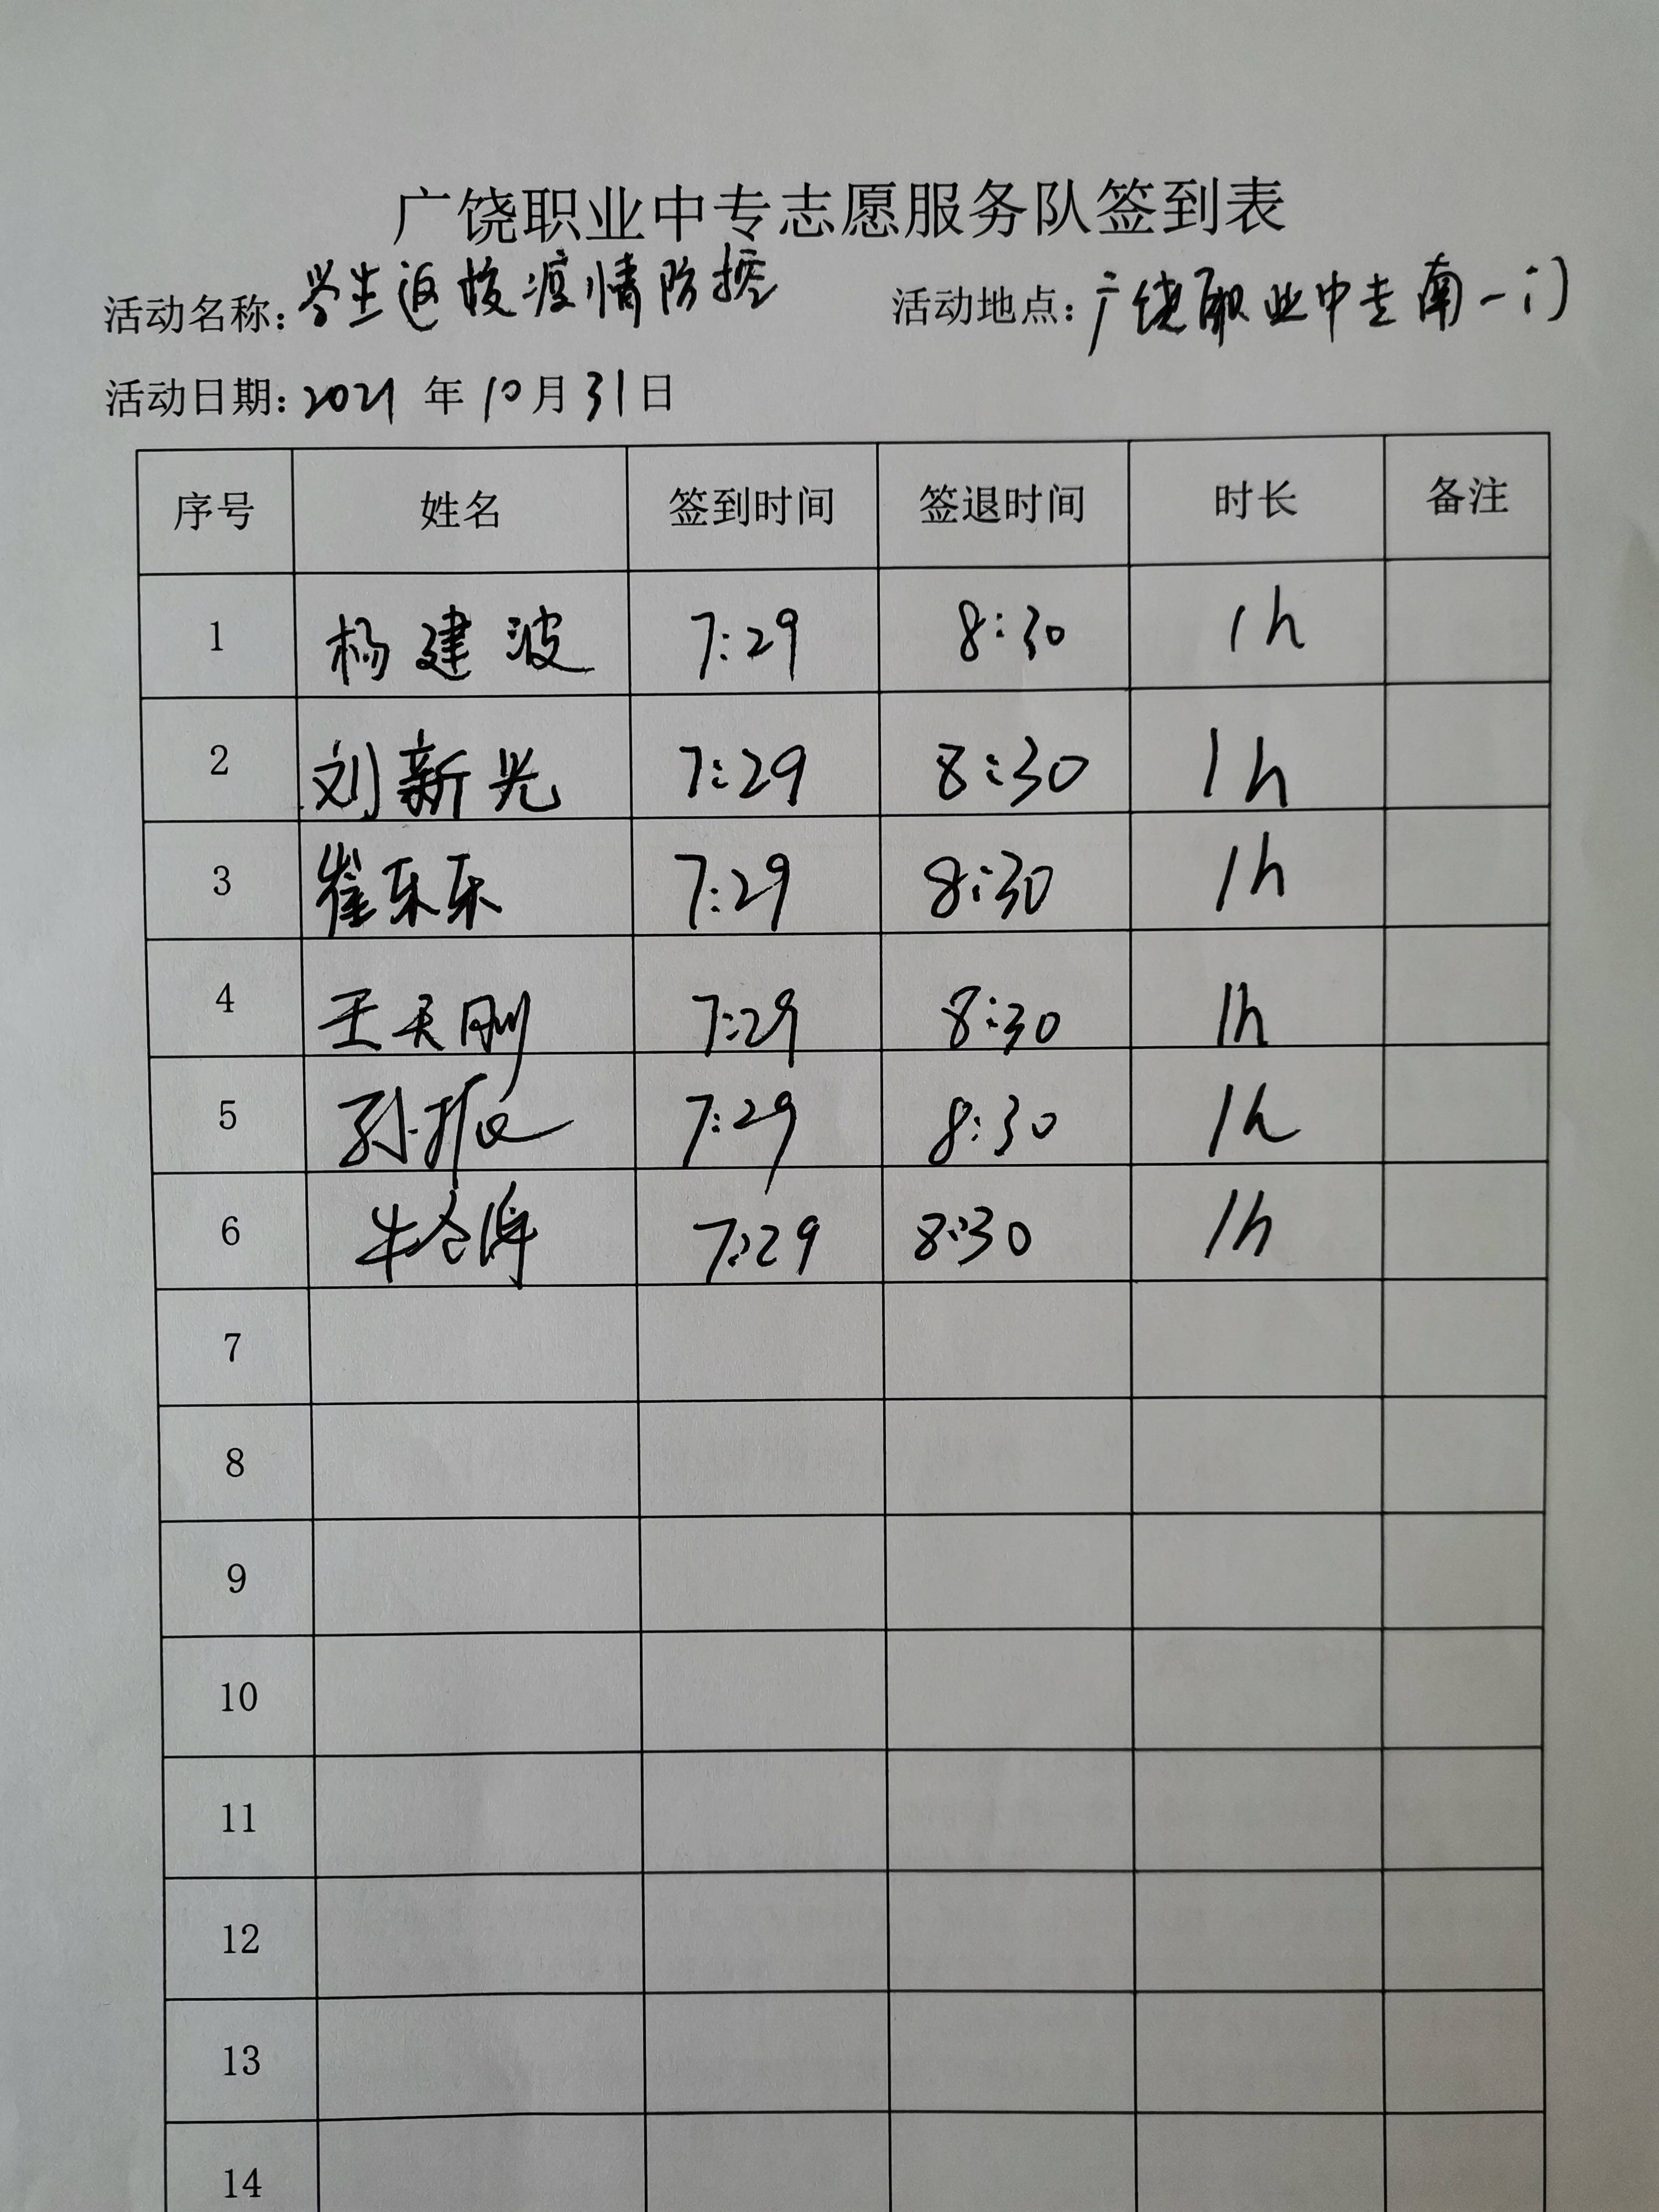 广饶职业中专志愿服务队签到表
活动名称：学生返校疫情防控 活动地点：广饶职业中专南一门
活动日期：2021 年 10 月 31 日
序号 姓名 签到时间 签退时间 时长 备注
1 杨建波 7:29 8:30 1h
2 刘新光 7:29 8:30 1h
3 崔乐乐 7:29 8:30 1h
4 王天刚 7:29 8:30 1h
5 孙 7:29 8:30 1h
6 牛 7:29 8:30 1h
7
8
9
10
11
12
13
14